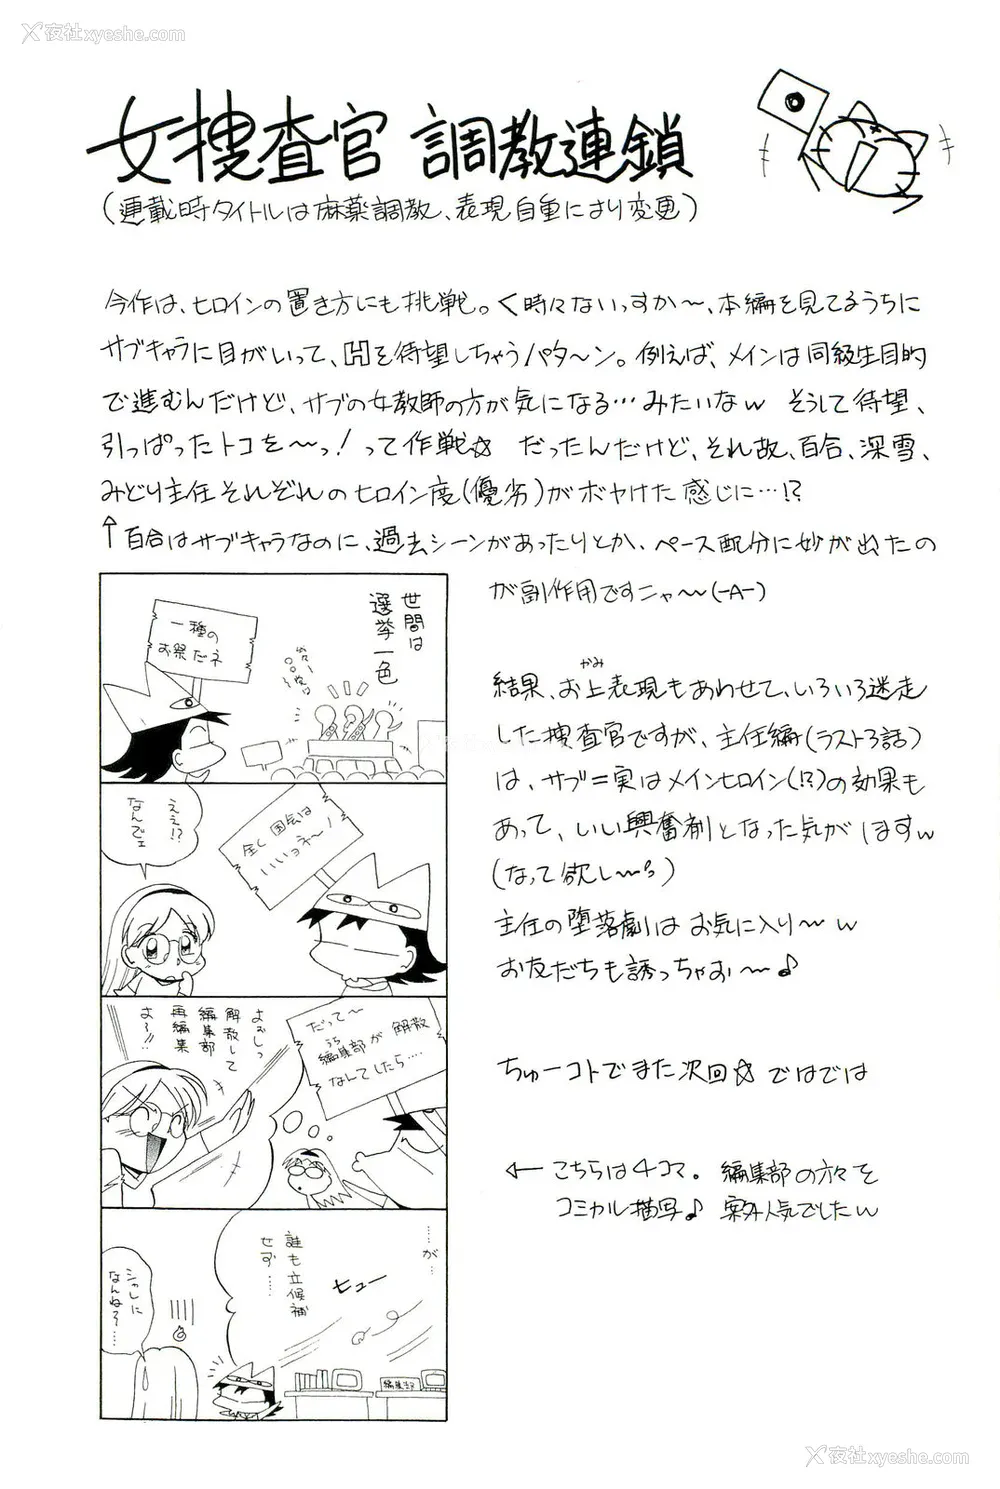 夜社xyeshe.com
女捜査官 調教連鎖
(連載時タイトルは麻薬調教、表現自重により変更)
今作は、ヒロインの置き方にも挑戦。く時々ないっすか～、本編を見てるうちに
サブキャラに目がいって、Hを待望しちゃうパタ～ン。例えば、メインは同級生目的
で進むんだけど、サブの女教師の方が気になる…みたいなw そうして待望、
引っぱったトコを～っ!って作戦☆ だったんだけど、それ故、百合、深雪、
みどり主任それぞれのヒロイン度(優劣)がボヤけた感じに…!?
↑百合はサブキャラなのに、過去シーンがあったりとか、ペース配分に妙が出たの
が副作用ですニャ～(-A-)
結果、お上表現もあわせて、いろいろ迷走
かみ
した捜査官ですが、主任編(ラスト3話)
は、サブ=実はメインヒロイン(!?)の効果も
あって、いい興奮剤となった気がしますw
(なって欲し～っ)
主任の堕落劇はお気に入り～w
お友だちも誘っちゃお～♪
ちゅーコトでまた次回☆ ではでは
←こちらは4コマ。編集部の方々を
コミカル描写♪ 案外人気でしたw
世間は
選挙一色
一種の
お祭だネ
ええ!?
なんでェ
全く国会は
いいョネ～!
だって～
うち
編集部が解散
なんてしたら‥‥
よぉしっ
解散して
編集部
再編集
よ～!!
……が…
誰も立候補
せず……
ヒュー
編集部
シャレに
なんね～……
夜社xyeshe.com